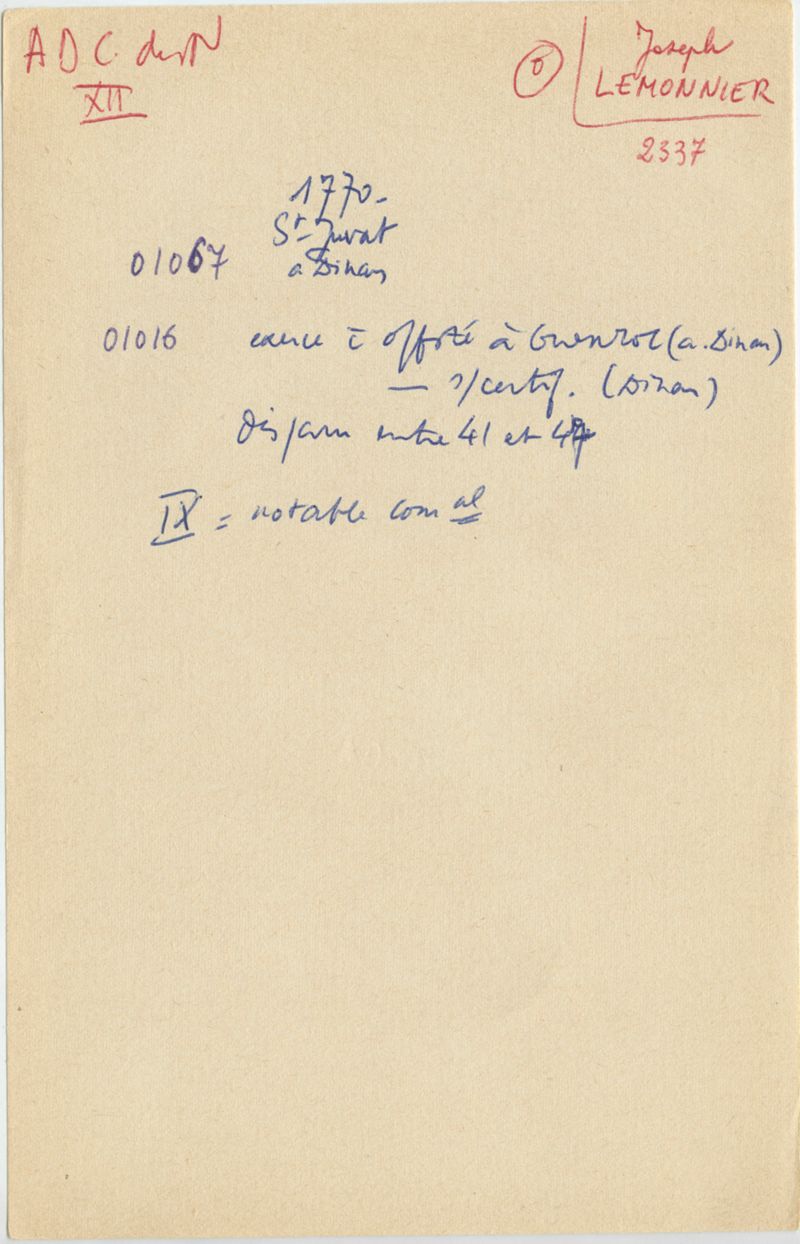 A D C du N
XII
6
Joseph
LEMONNIER
2337
1770-
St-Juvat
01067 a Dinan
01016 exerce c̄ offsté à Guenroc (a. Dinan)
— s/certif. (Dinan)
disparu entre 41 et 47
IX = notable com al